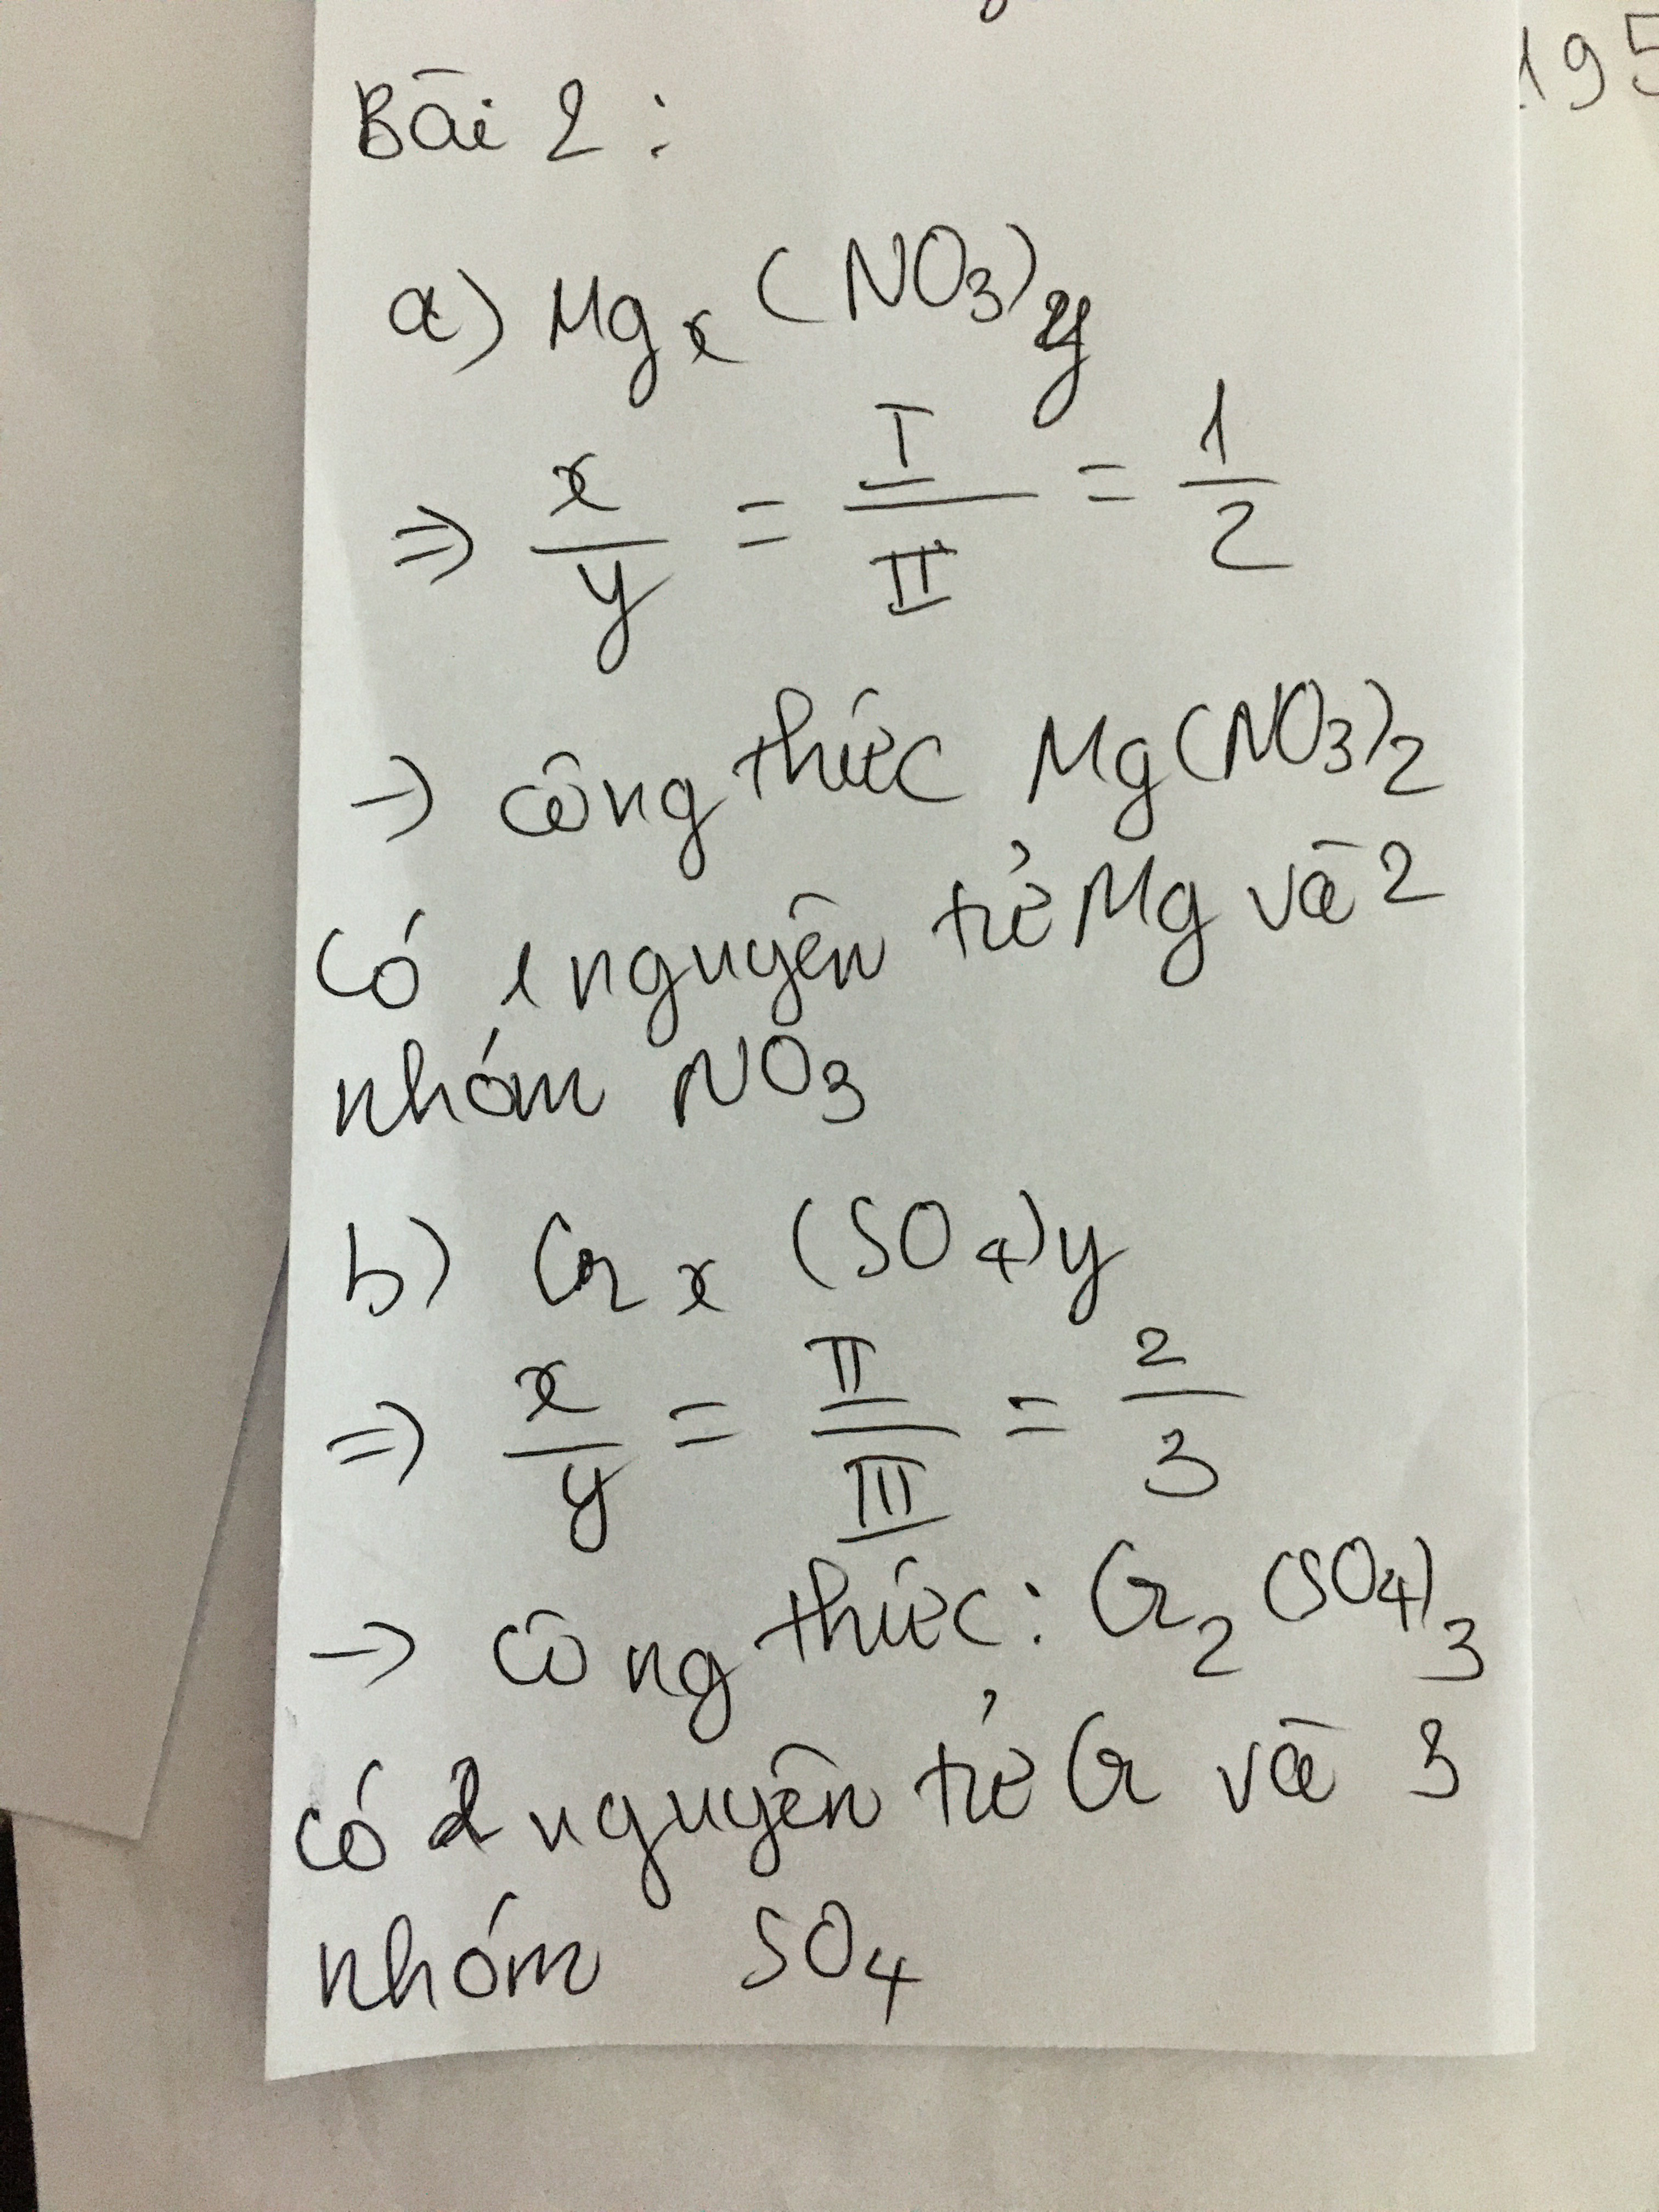 195
Bài 2 :
a) Mgx (NO3)y
=> x/y = I/II = 1/2
-> công thức Mg(NO3)2
có 1 nguyên tử Mg và 2
nhóm NO3
b) Crx (SO4)y
=> x/y = II/III = 2/3
-> công thức : Cr2 (SO4)3
có 2 nguyên tử Cr và 3
nhóm SO4